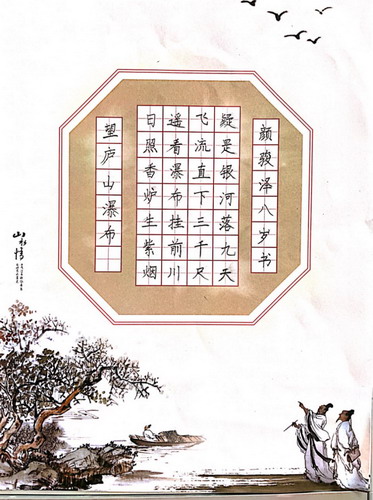 望庐山瀑布
日照香炉生紫烟
遥看瀑布挂前川
飞流直下三千尺
疑是银河落九天
颜骏泽八岁书
山水情